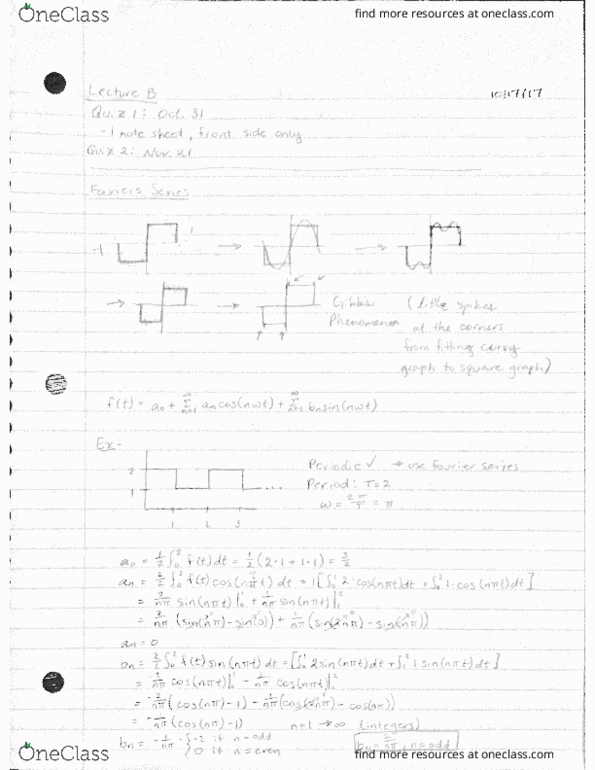 OneClass
find more resources at oneclass.com
Lecture B
10/17/17
Quiz 1: Oct. 31
- 1 note sheet, front side only
Quiz 2: Nov. 21
Fouriers Series
-1
1
Gibbis (little spikes
Phenomenon at the corners
from fitting curvy
graph to square graph)
f(t) = a₀ + Σ aₙcos(nωt) + Σ bₙsin(nωt)
Ex:
2
1
1 2 3
Periodic ✓ → use fourier series
Period: T=2
ω = 2π/T = π
a₀ = 1/2 ∫₀² f(t)dt = 1/2 (2·1 + 1·1) = 3/2
aₙ = 2/2 ∫₀² f(t)cos(nπt) dt = 1[∫₀¹ 2·cos(nπt)dt + ∫₁² 1·cos(nπt)dt]
= 2/nπ sin(nπt)|₀¹ + 1/nπ sin(nπt)|₁²
= 2/nπ (sin(nπ) - sin(0)) + 1/nπ (sin(2nπ) - sin(nπ))
aₙ = 0
bₙ = 2/2 ∫₀² f(t)sin(nπt) dt = [∫₀¹ 2sin(nπt)dt + ∫₁² 1sin(nπt)dt]
= -2/nπ cos(nπt)|₀¹ - 1/nπ cos(nπt)|₁²
= -2/nπ (cos(nπ) - 1) - 1/nπ (cos(2nπ) - cos(nπ))
= -1/nπ (cos(nπ) - 1) n=1 → ∞ (integers)
bₙ = -1/nπ {-2 if n=odd
0 if n=even
bₙ = 2/nπ, n=odd
OneClass
find more resources at oneclass.com